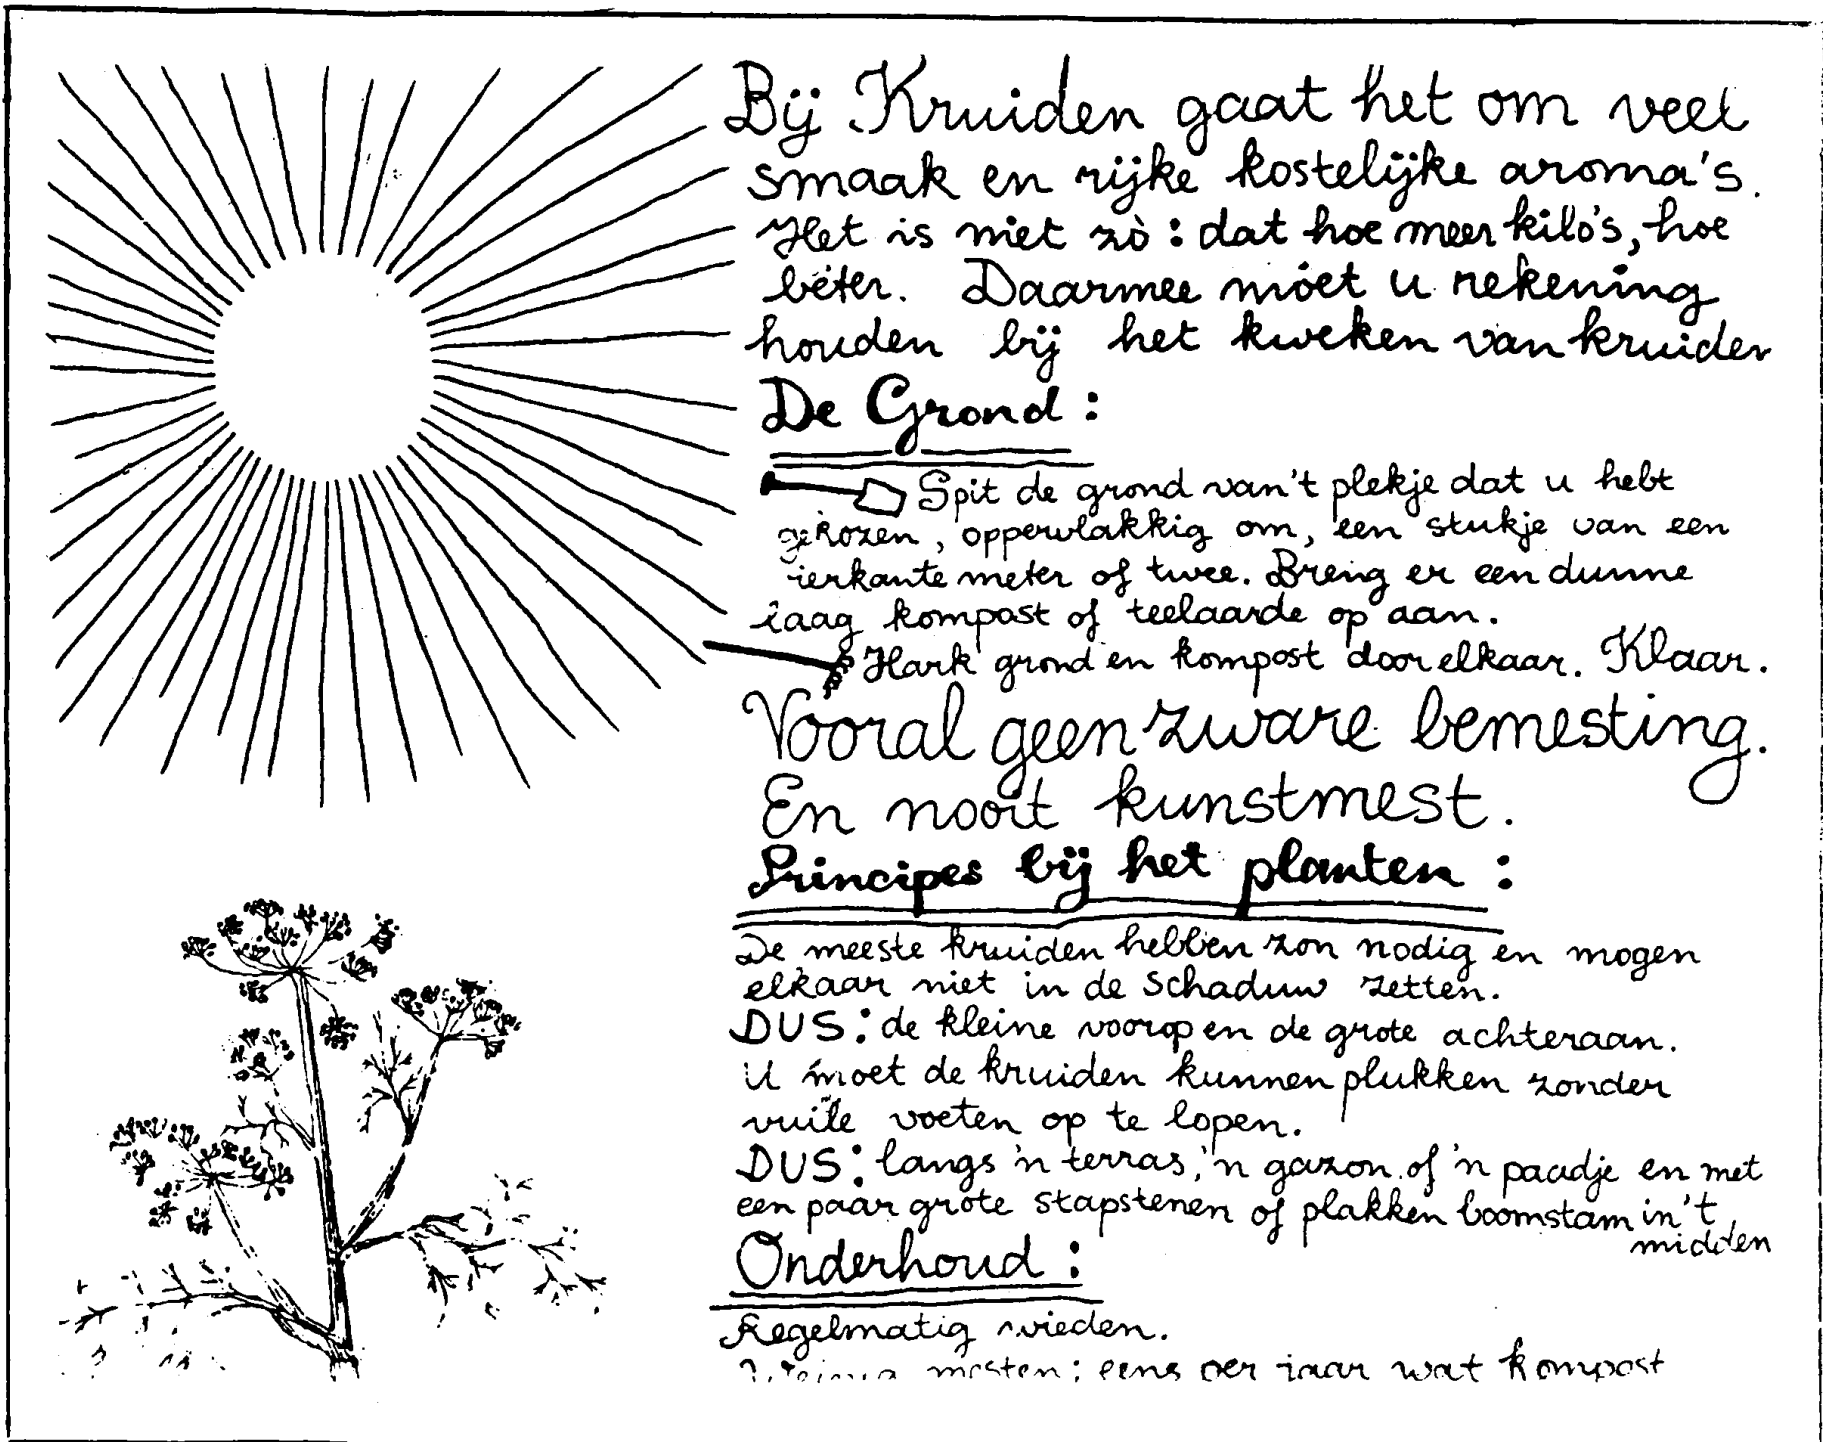 Bij Kruiden gaat het om veel
smaak en rijke kostelijke aroma's.
Het is niet zò: dat hoe meer kilo's, hoe
beter. Daarmee moet u rekening
houden bij het kweken van kruiden
De Grond:
Spit de grond van 't plekje dat u hebt
gekozen, oppervlakkig om, een stukje van een
ierkante meter of twee. Breng er een dunne
laag kompost of teelaarde op aan.
Hark grond en kompost door elkaar. Klaar.
Vooral geen zware bemesting.
En nooit kunstmest.
Principes bij het planten:
De meeste kruiden hebben zon nodig en mogen
elkaar niet in de schaduw zetten.
DUS: de kleine voorop en de grote achteraan.
U moet de kruiden kunnen plukken zonder
vuile voeten op te lopen.
DUS: langs 'n terras, 'n gazon of 'n paadje en met
een paar grote stapstenen of plakken boomstam in 't
midden
Onderhoud:
Regelmatig wieden.
Weinig mesten: eens per jaar wat kompost